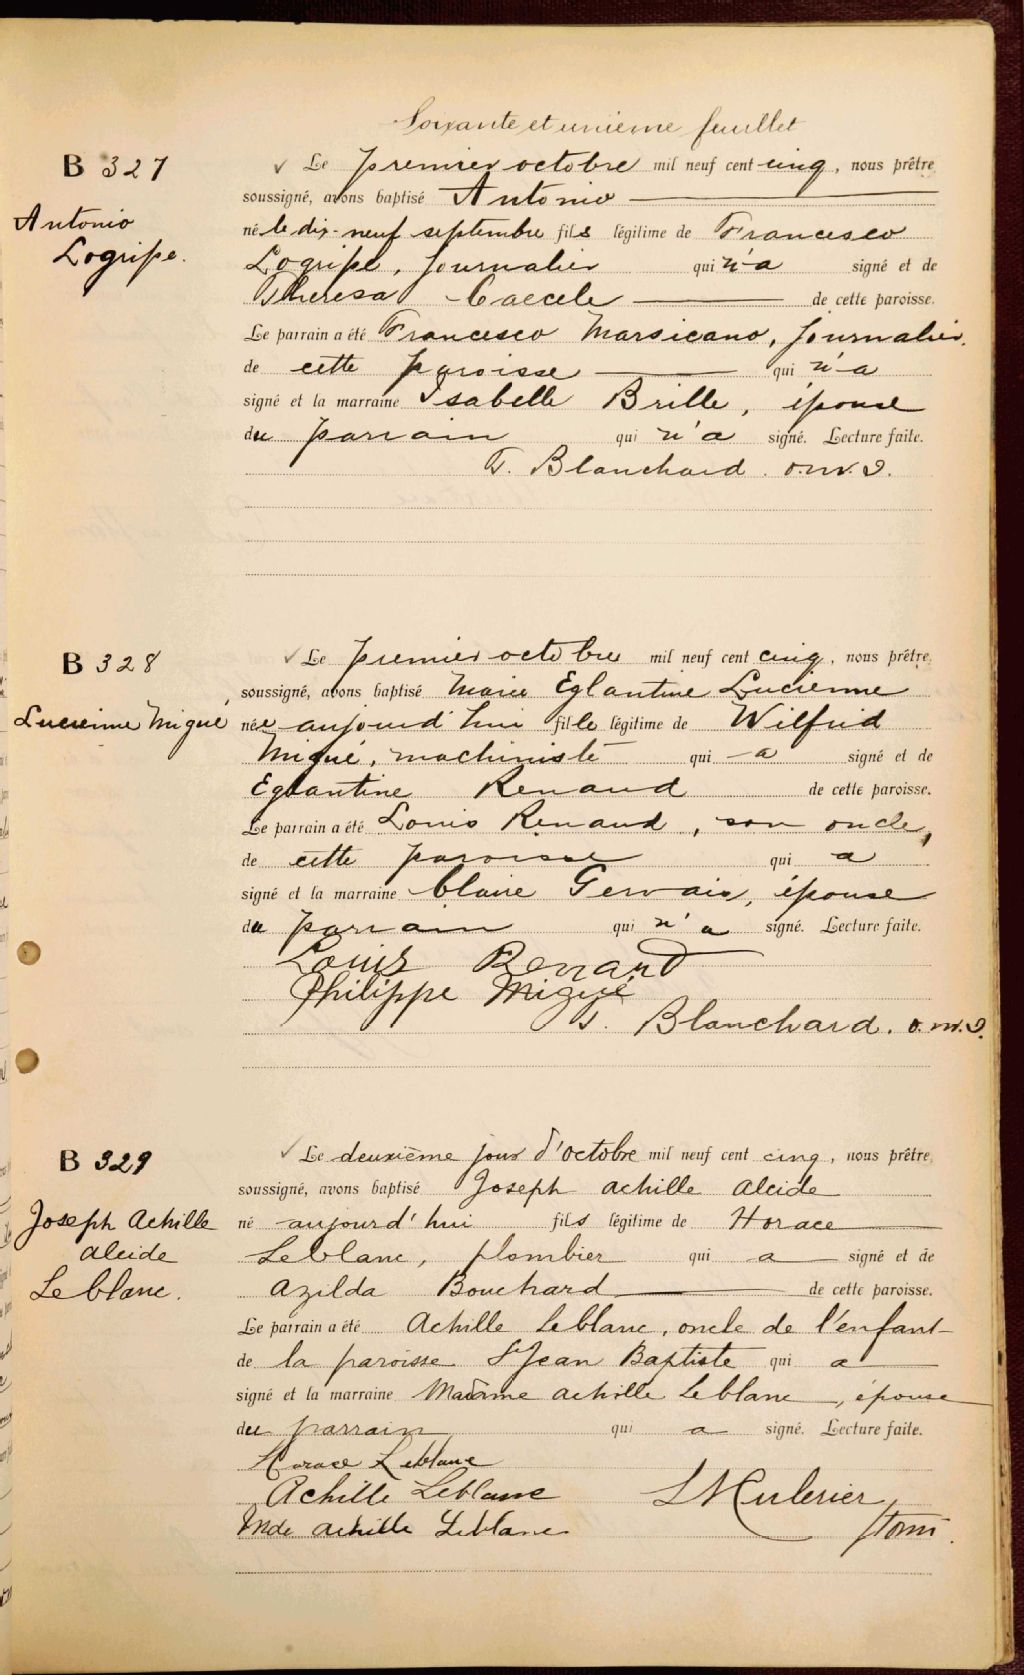 Soixante et unième feuillet
B 327
Antonio
Logripe.
✓ Le premier octobre mil neuf cent cinq, nous prêtre
soussigné, avons baptisé Antonio
né le dix-neuf septembre fils légitime de Francesco
Logripe, journalier qui n'a signé et de
Theresa Caecele de cette paroisse.
Le parrain a été Francesco Marsicano, journalier.
de cette paroisse qui n'a
signé et la marraine Isabelle Brille, épouse
du parrain qui n'a signé. Lecture faite.
T. Blanchard. o.m.I.
B 328
Lucienne Migué
✓ Le premier octobre mil neuf cent cinq, nous prêtre
soussigné, avons baptisé Marie Eglantine Lucienne
née aujourd'hui fille légitime de Wilfrid
Migué, machiniste qui a signé et de
Eglantine Renaud de cette paroisse.
Le parrain a été Louis Renaud, son oncle,
de cette paroisse qui a
signé et la marraine Claire Gervais, épouse
du parrain qui n'a signé. Lecture faite.
Louis Renand
Philippe Migué
T. Blanchard. o.m.I.
B 329
Joseph Achille
Alcide
Leblanc.
✓ Le deuxième jour d'octobre mil neuf cent cinq, nous prêtre
soussigné, avons baptisé Joseph Achille Alcide
né aujourd'hui fils légitime de Horace
Leblanc, plombier qui a signé et de
Azilda Bouchard de cette paroisse.
Le parrain a été Achille Leblanc, oncle de l'enfant
de la paroisse St Jean Baptiste qui a
signé et la marraine Madame Achille Leblanc, épouse
du parrain qui a signé. Lecture faite.
Horace Leblanc
Achille Leblanc
Mde Achille Leblanc